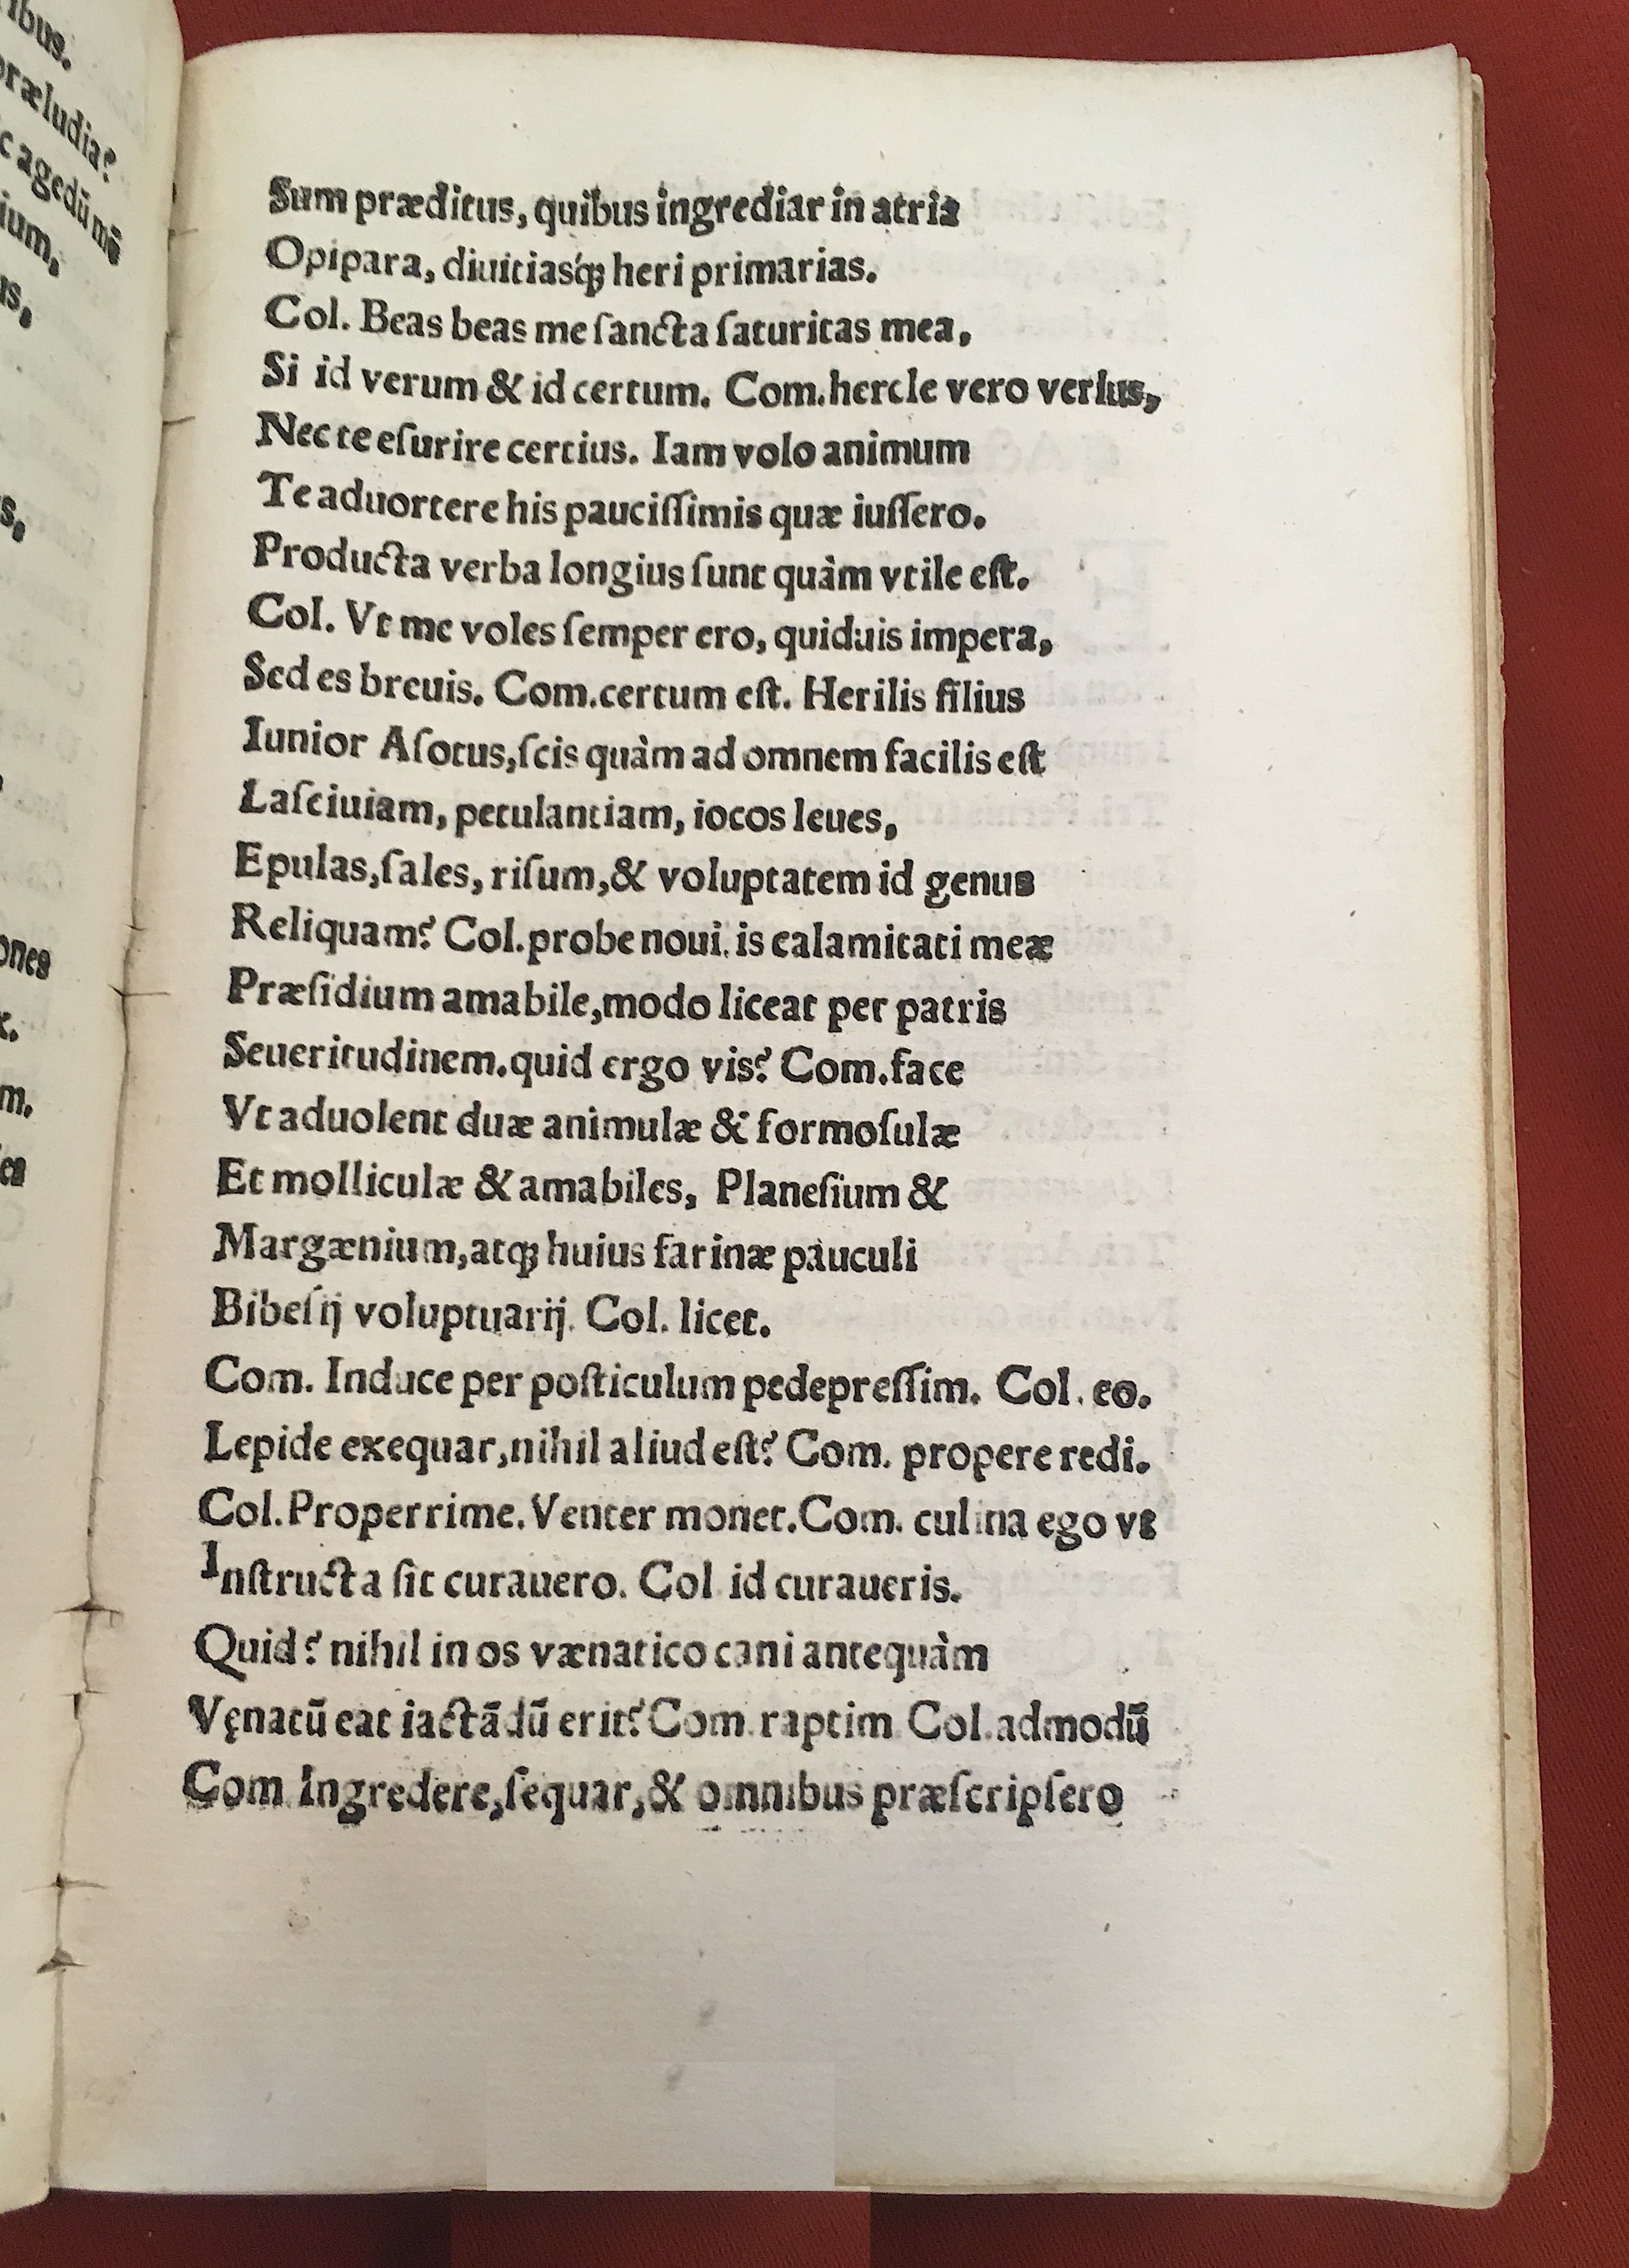 ribus.
præludia?
c agedū mō
ium,
us,
s,
ones
x.
m.
Sum præditus, quibus ingrediar in atria
Opipara, diuitiasq́ꝫ heri primarias.
Col. Beas beas me ſancta ſaturitas mea,
Si id verum & id certum. Com.hercle vero verius,
Nec te eſurire certius. Iam volo animum
Te aduortere his pauciſſimis quæ iuſſero.
Producta verba longius ſunt quàm vtile eſt.
Col. Vt me voles ſemper ero, quiduis impera,
Sed es breuis. Com.certum eſt. Herilis filius
Iunior Aſotus,ſcis quàm ad omnem facilis eſt
Laſciuiam, petulantiam, iocos leues,
Epulas,ſales, riſum,& voluptatem id genus
Reliquam? Col.probe noui. is calamitati meæ
Præſidium amabile,modo liceat per patris
Seueritudinem.quid ergo vis? Com.face
Vt aduolent duæ animulæ & formoſulæ
Et molliculæ & amabiles, Planeſium &
Margænium,atqꝫ huius farinæ pauculi
Bibeſij voluptuarij. Col. licet.
Com. Induce per poſticulum pedepreſſim. Col. eo.
Lepide exequar,nihil aliud eſt? Com. propere redi.
Col.Properrime.Venter monet.Com. culina ego vt
Inſtructa ſit curauero. Col id curaueris.
Quid? nihil in os vænatico cani antequàm
Vęnatū eat iactādū erit? Com.raptim Col.admodū
Com ingredere,ſequar,& omnibus præſcripſero